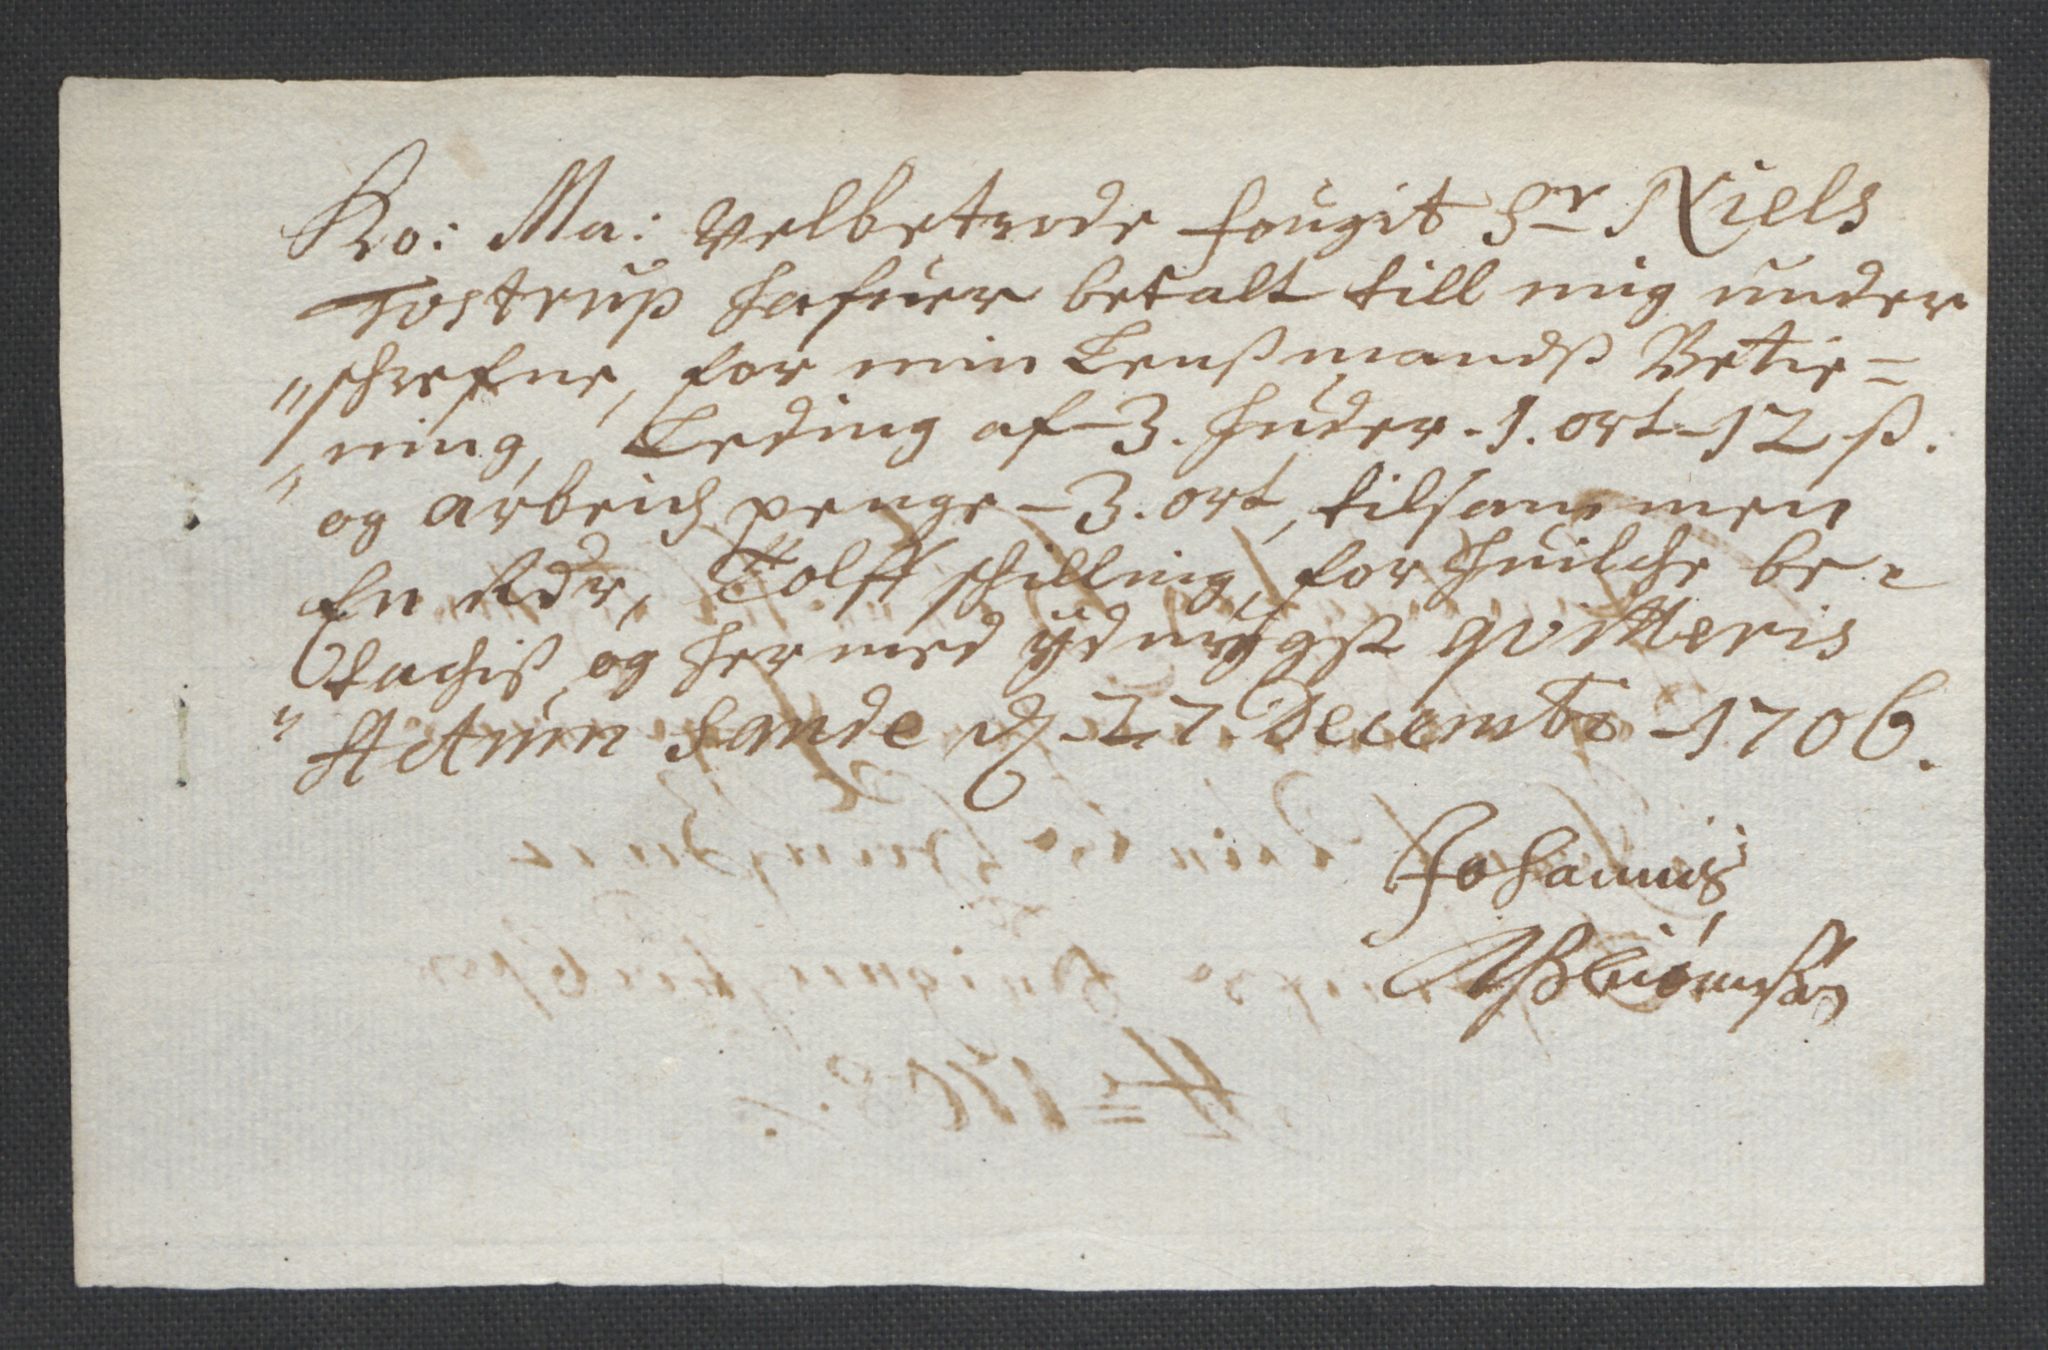 Ko: Ma: Velbetrode fougit Sr Niels
Tostrup hafuer betalt till mig under
"schrefne, for min Lensmands Betie=
"ning, Leding af 3. Huder - 1. ort - 12 ß.
og arbeids penge - 3. ort, tilsammen
En Rdr, Tolff schilling, for huilche be=
"tachis og hermed ydmygst qvitteris
Actum Sande d. 27 Decembr - 1706.
Johannis